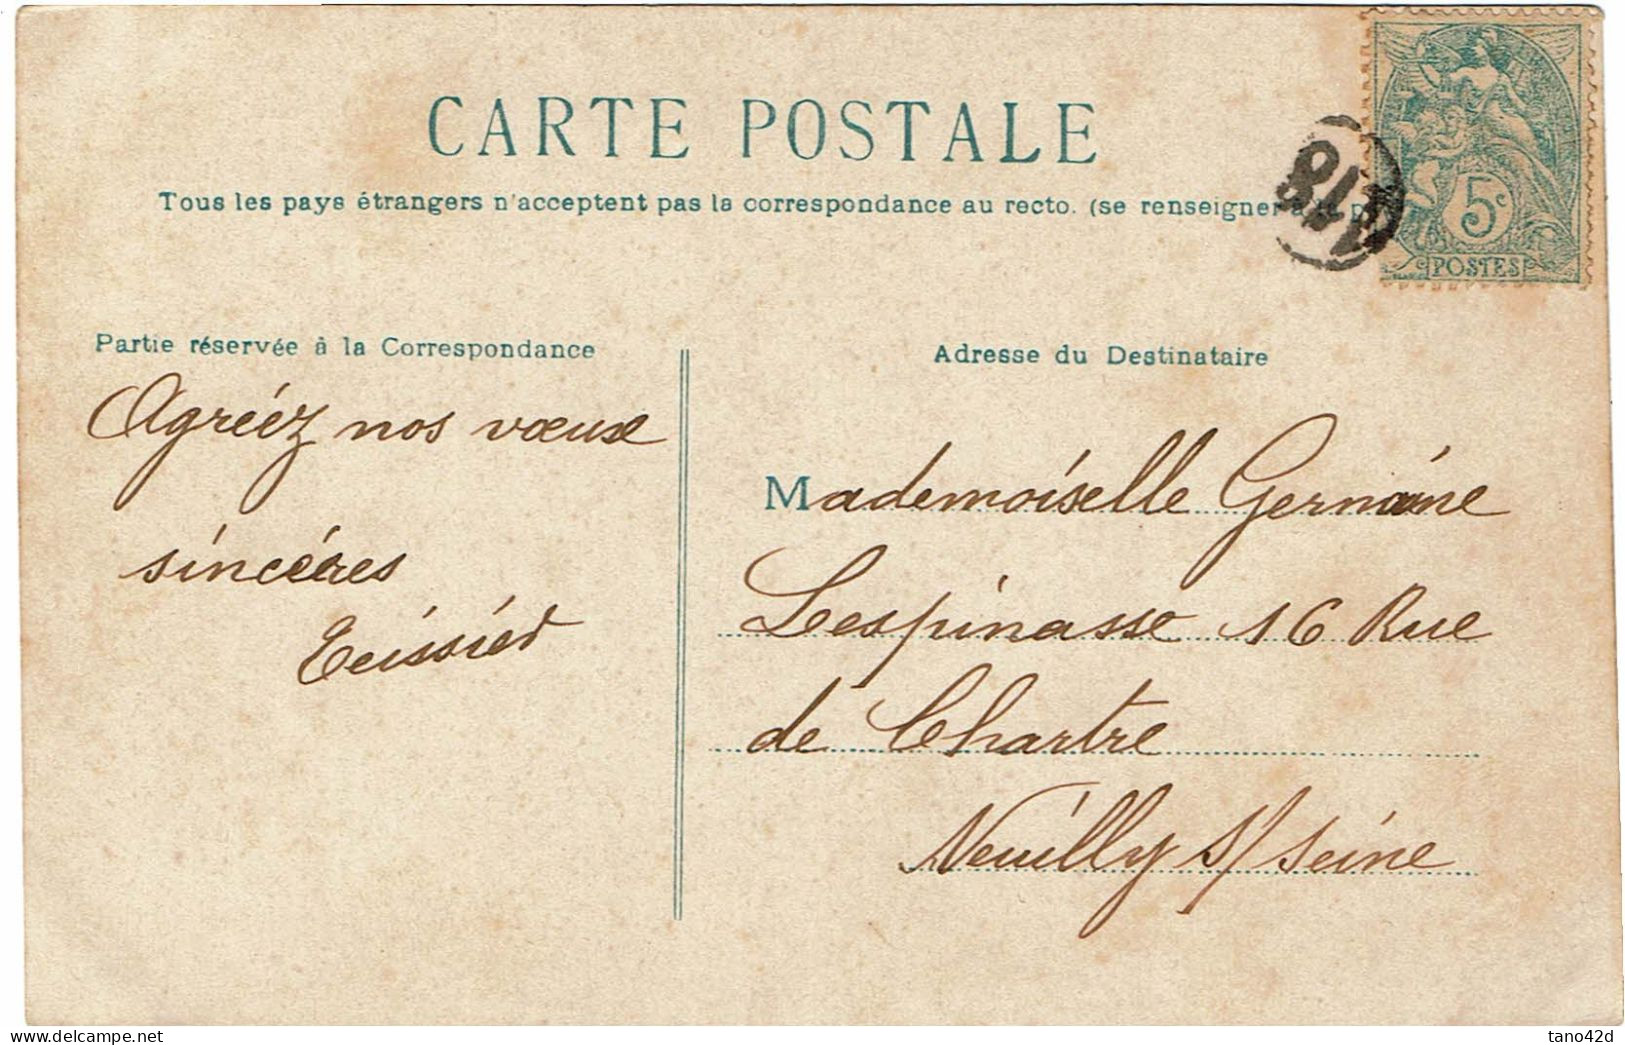 CARTE POSTALE
Tous les pays étrangers n'acceptent pas la correspondance au recto. (se renseigner à la p
5c
POSTES
Partie réservée à la Correspondance
Adresse du Destinataire
Agréez nos vœux
sincéres
Mademoiselle Germaine
Lespinasse 16 Rue
de Chartre
Neuilly S/Seine
delcampe.net
tano42d